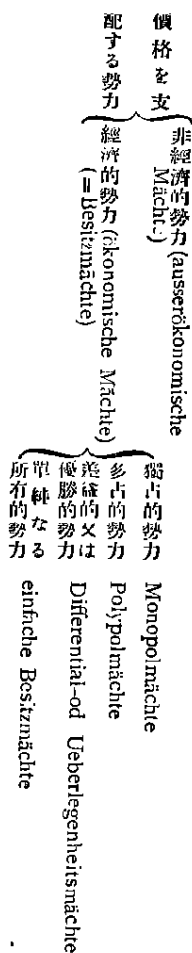 價格を支
配する勢力
非經濟的勢力 (ausserökonomische
Mächte)
經濟的勢力 (ökonomische Mächte)
(=Besitzmächte)
獨占的勢力 Monopolmächte
多占的勢力 Polypolmächte
差益的又は
優勝的勢力 Differential-od Ueberlegenheitsmächte
單純なる
所有的勢力 einfache Besitzmächte